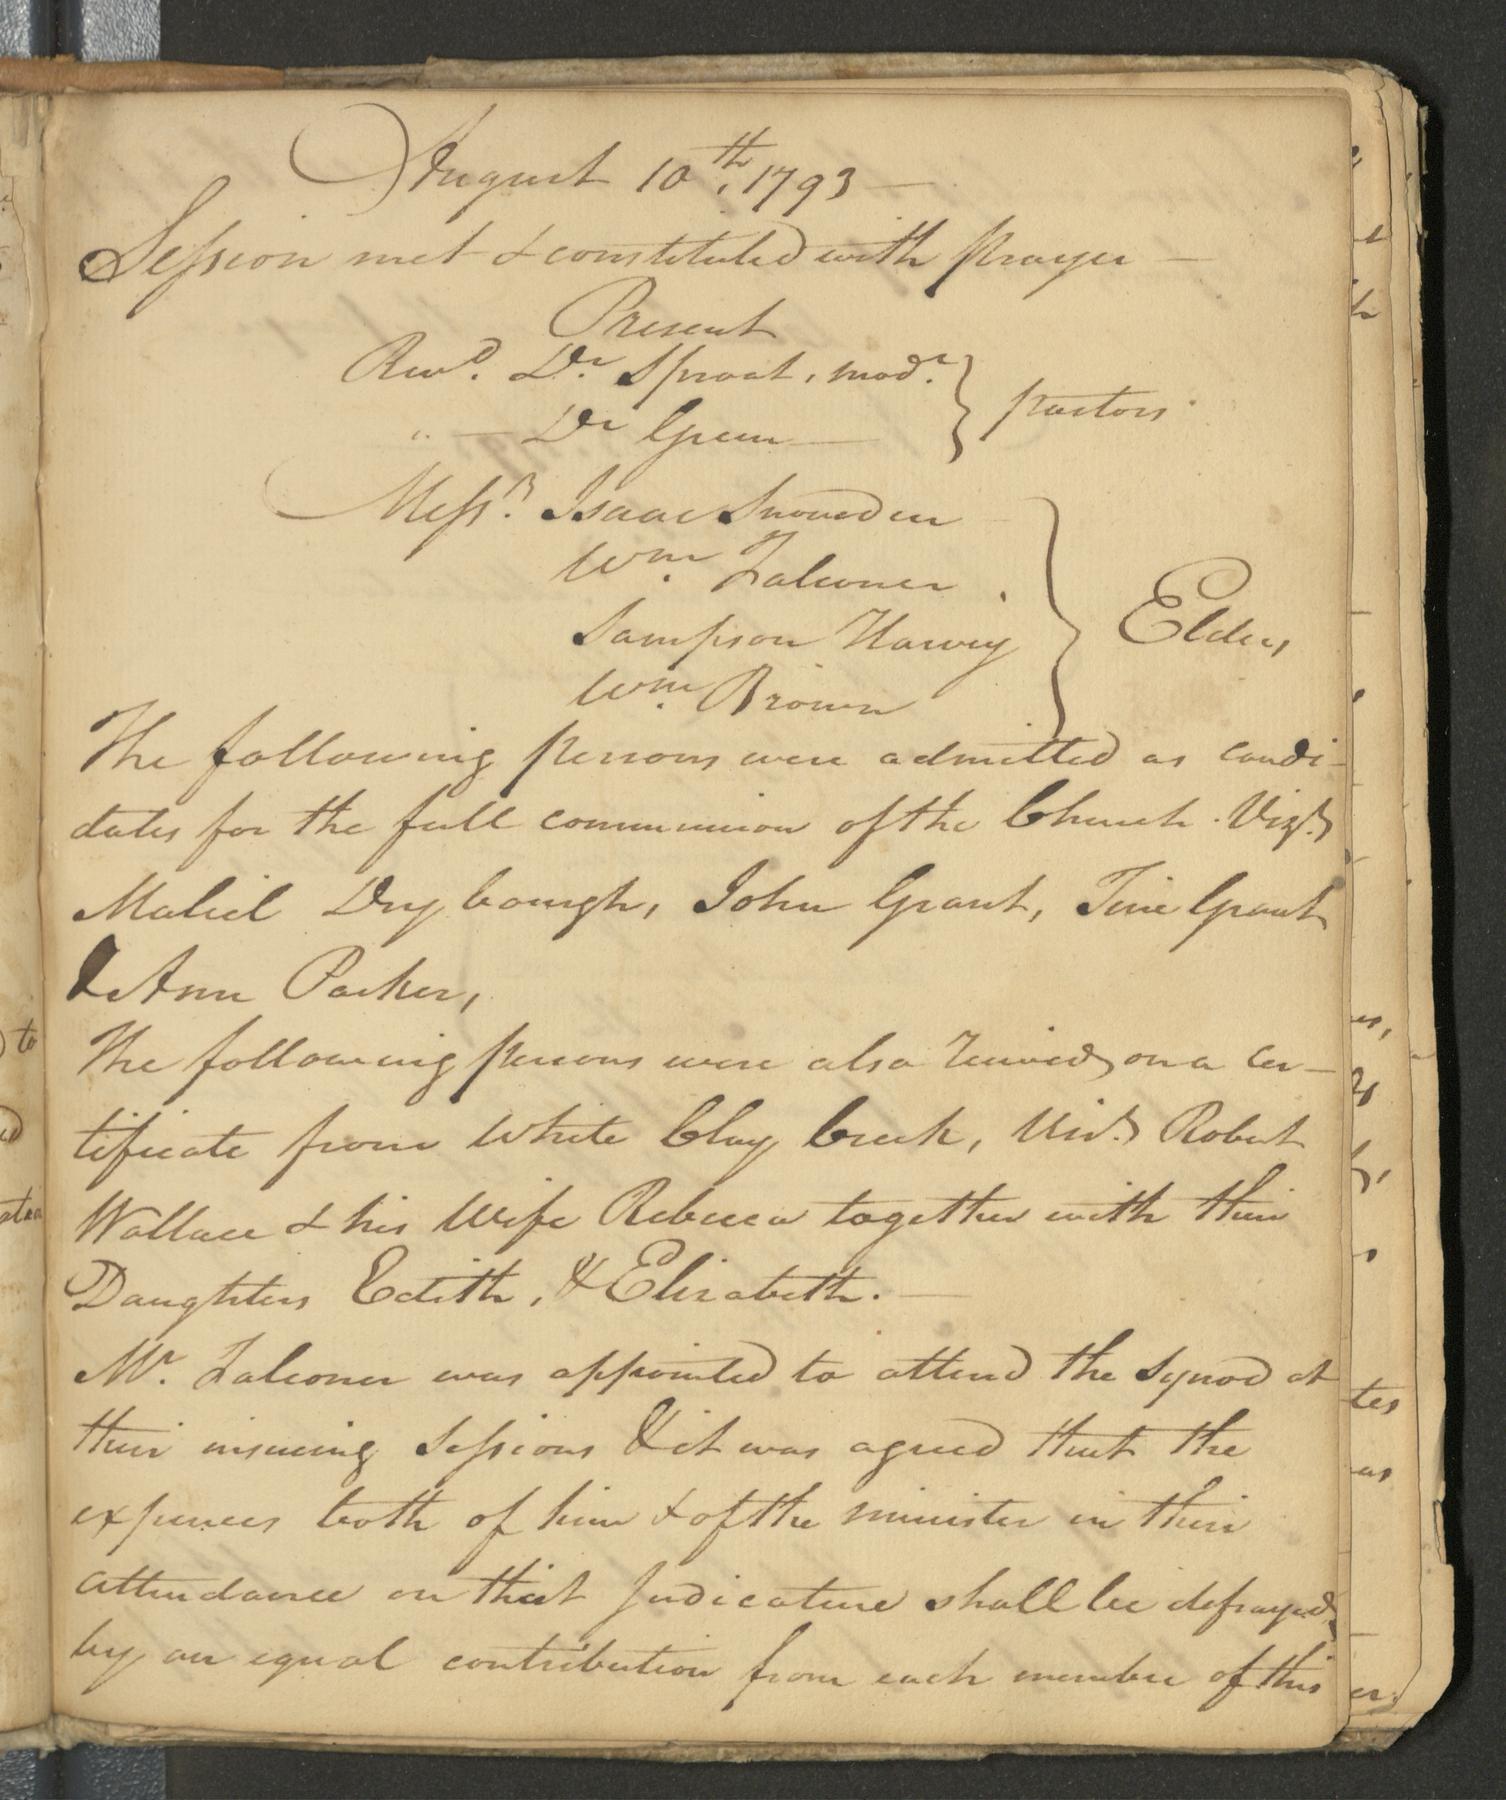 August 10th, 1793 —
Session met & constituted with prayer —
Present
Revd. Dr. Sproat, modr. } pastors
" — Dr Green —
Messrs. Isaac Snowden
Wm. Falconer.
Sampson Harvey } Elders
Wm. Brown
The following persons were admitted as candi-
dates for the full communion of the Church. Vizt.
Drybough, John Grant, Grant
& Ann Parker,
The following persons were also received on a cer-
tificate from White Clay Creek, Vizt. Robert
Wallace & his Wife Rebecca together with their
Daughters Edith, & Elizabeth. —
Mr. Falconer was appointed to attend the Synod at
their insueing Sessions & it was agreed that the
expences both of him & of the minister in their
attendance on that Judicature shall be defrayed
by an equal contribution from each member of this